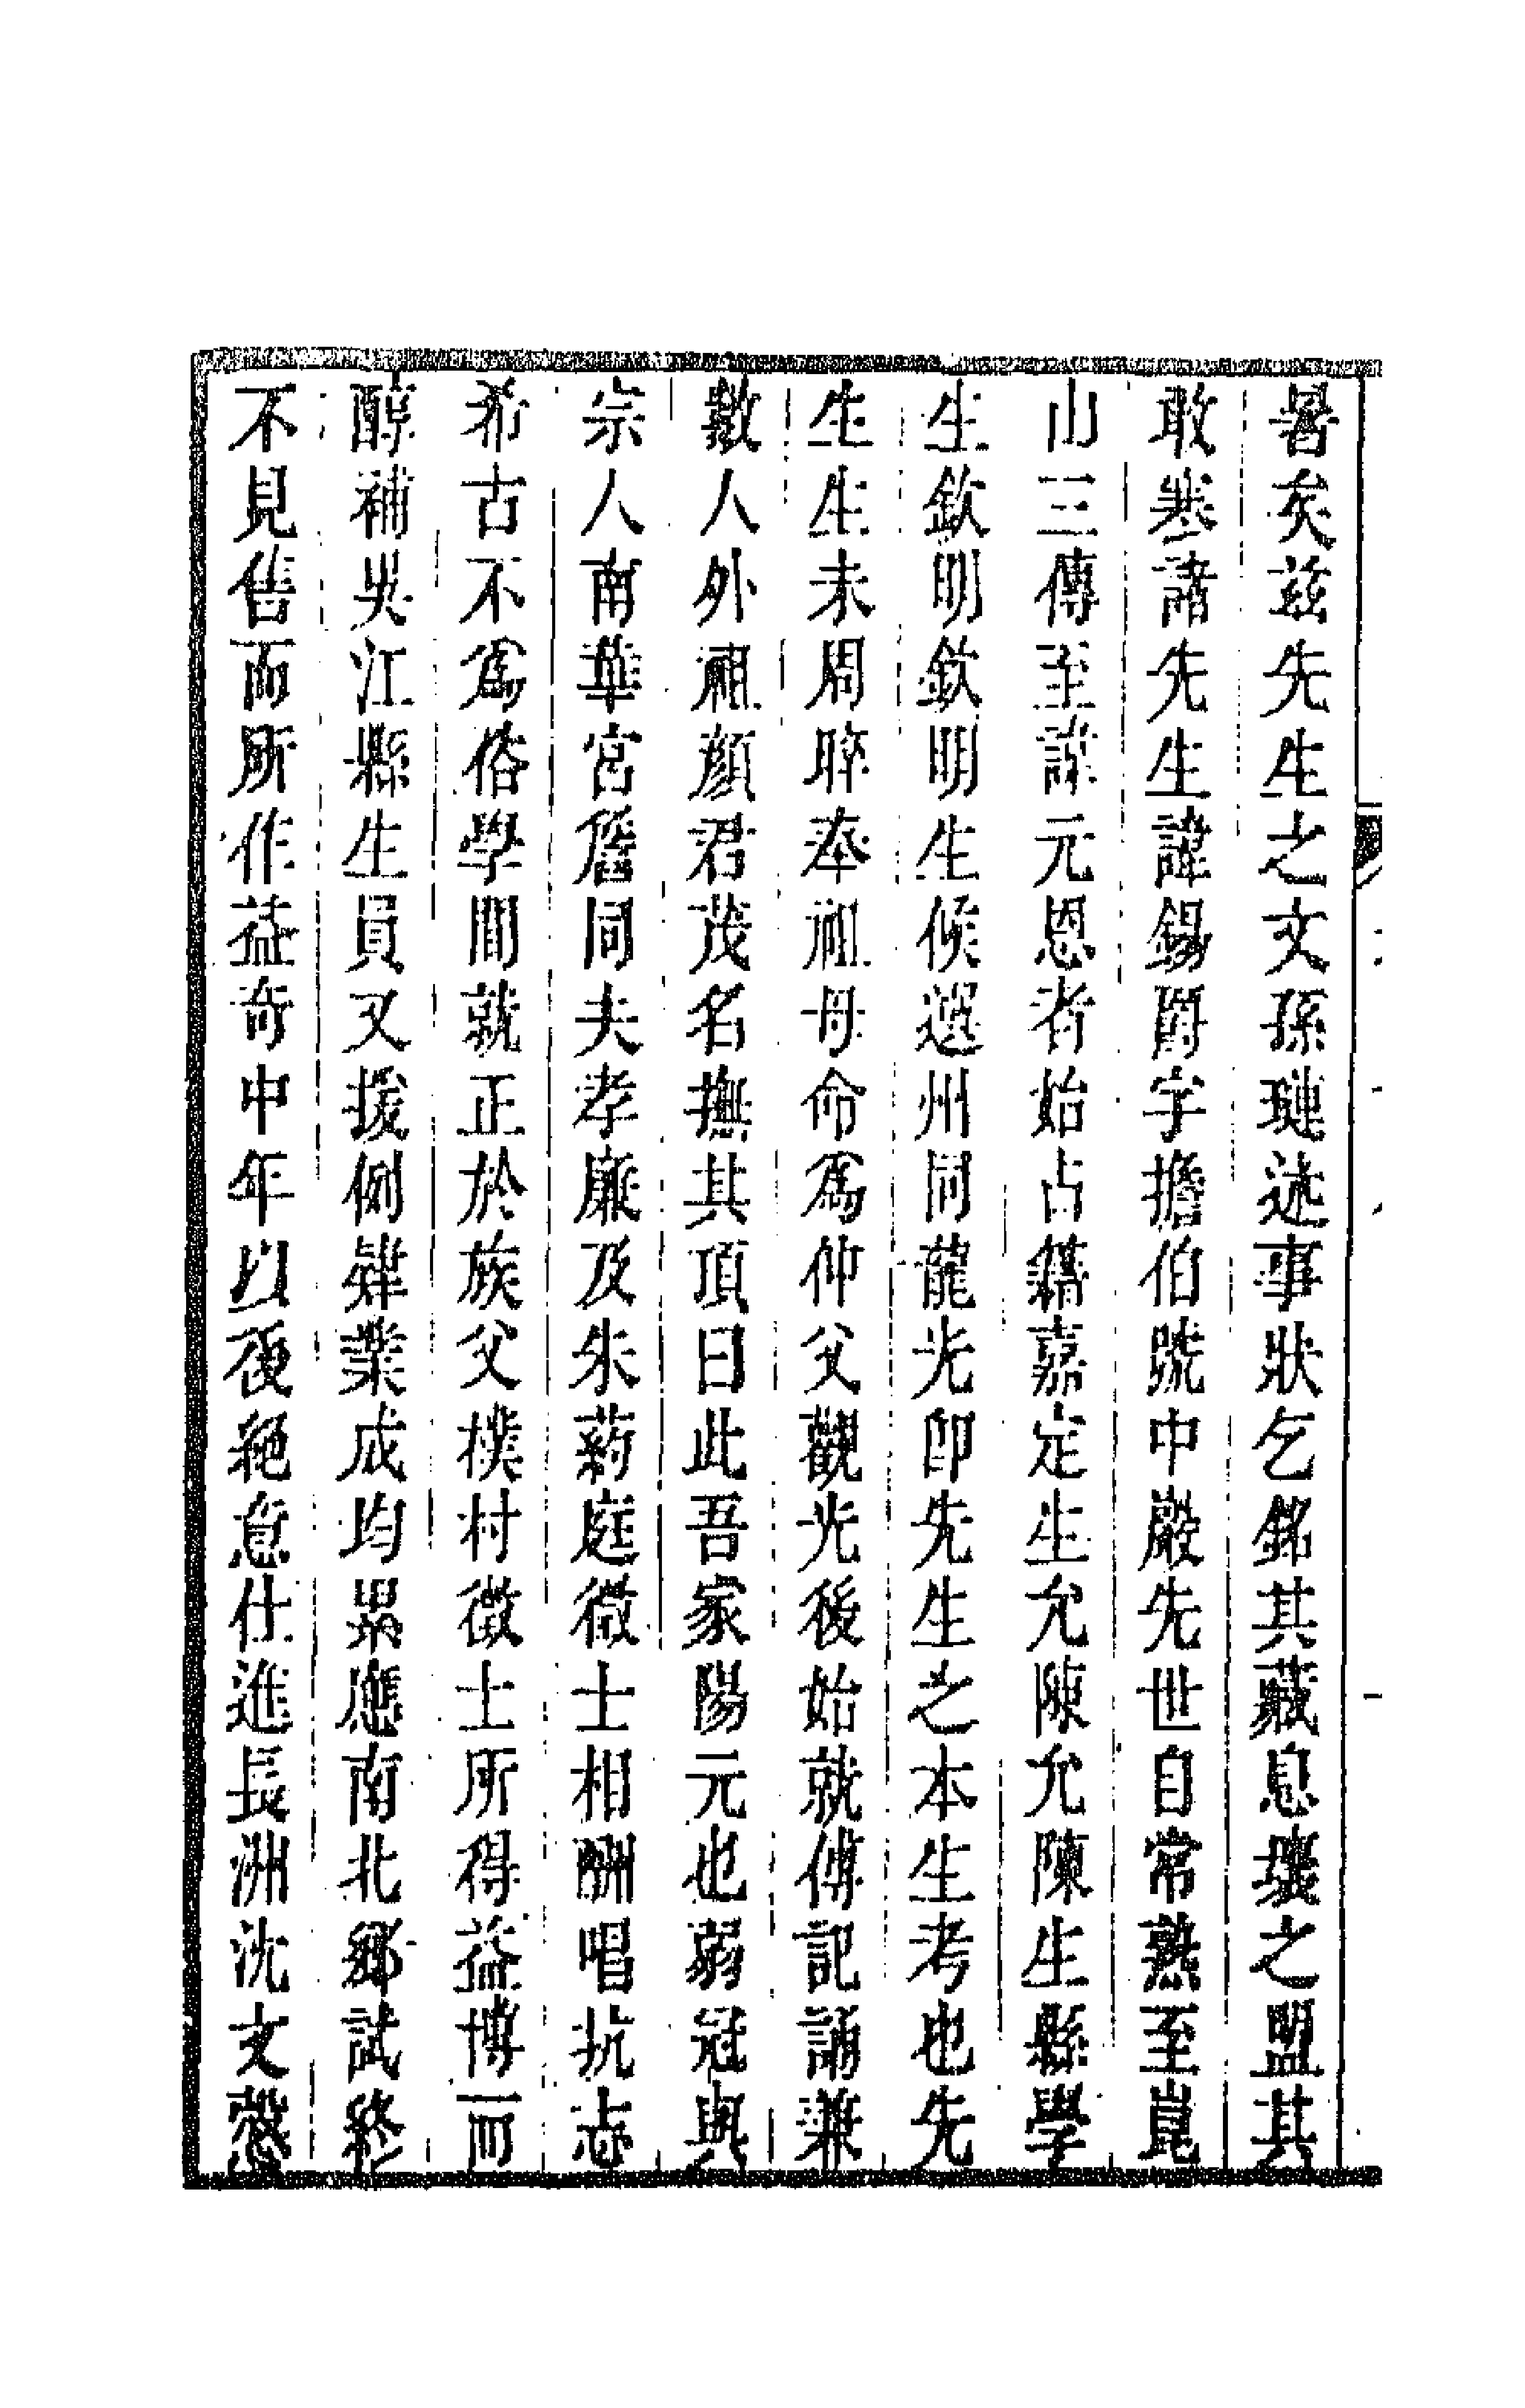 晷矣茲先生之文孫璉述事狀乞銘其藏息壤之盟其
敢寒諸先生諱錫爵字擔伯號中巖先世自常熟至崑
山三傳至諱元恩者始占籍嘉定生允陳允陳生縣學
生欽明欽明生候選州同龍光卽先生之本生考也先
生生未周晬奉祖母命爲仲父觀光後始就傅記誦兼
數人外祖顏君茂名撫其頂曰此吾家陽元也弱冠與
宗人南華宮詹同夫孝廉及朱葯庭徵士相酬唱抗志
希古不爲俗學間就正於族父樸村徵士所得益博而
醇補吳江縣生員又援例肄業成均累應南北鄉試終
不見售而所作益奇中年以後絕意仕進長洲沈文慤